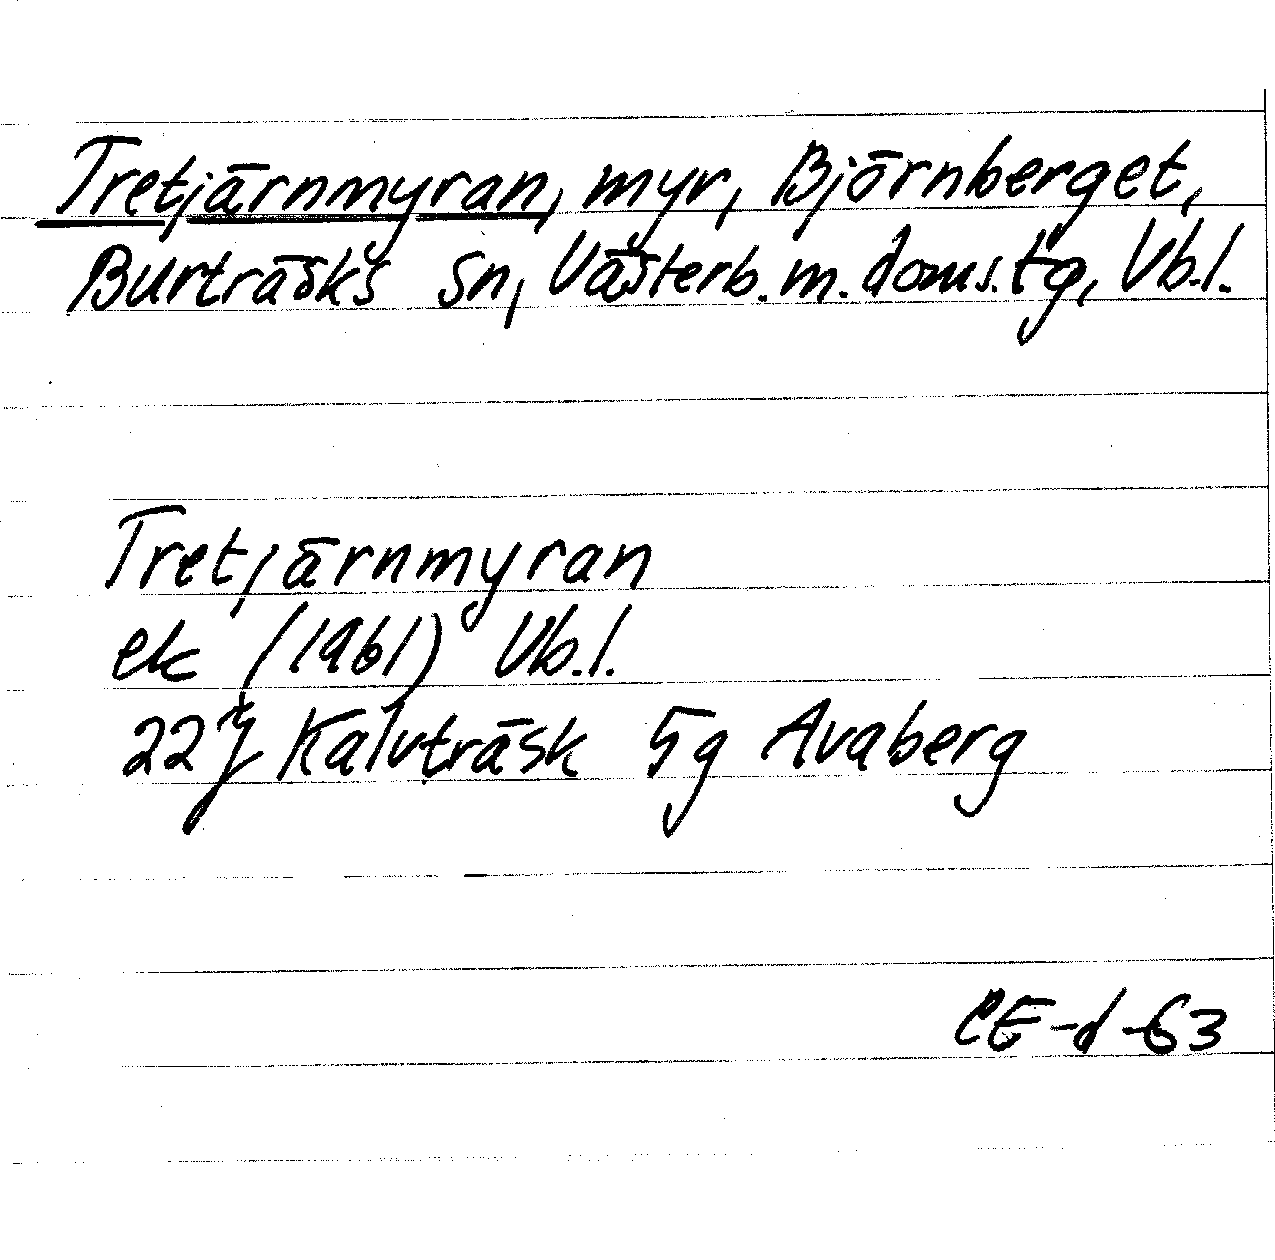 Tretjärnmyran, myr, Björnberget,
Burträsks sn, Västerb. m. doms. tg, Vb.l.
Tretjärnmyran
ek (1961) Vb.l.
22 J Kalvträsk 5g Avaberg
CE-d-63